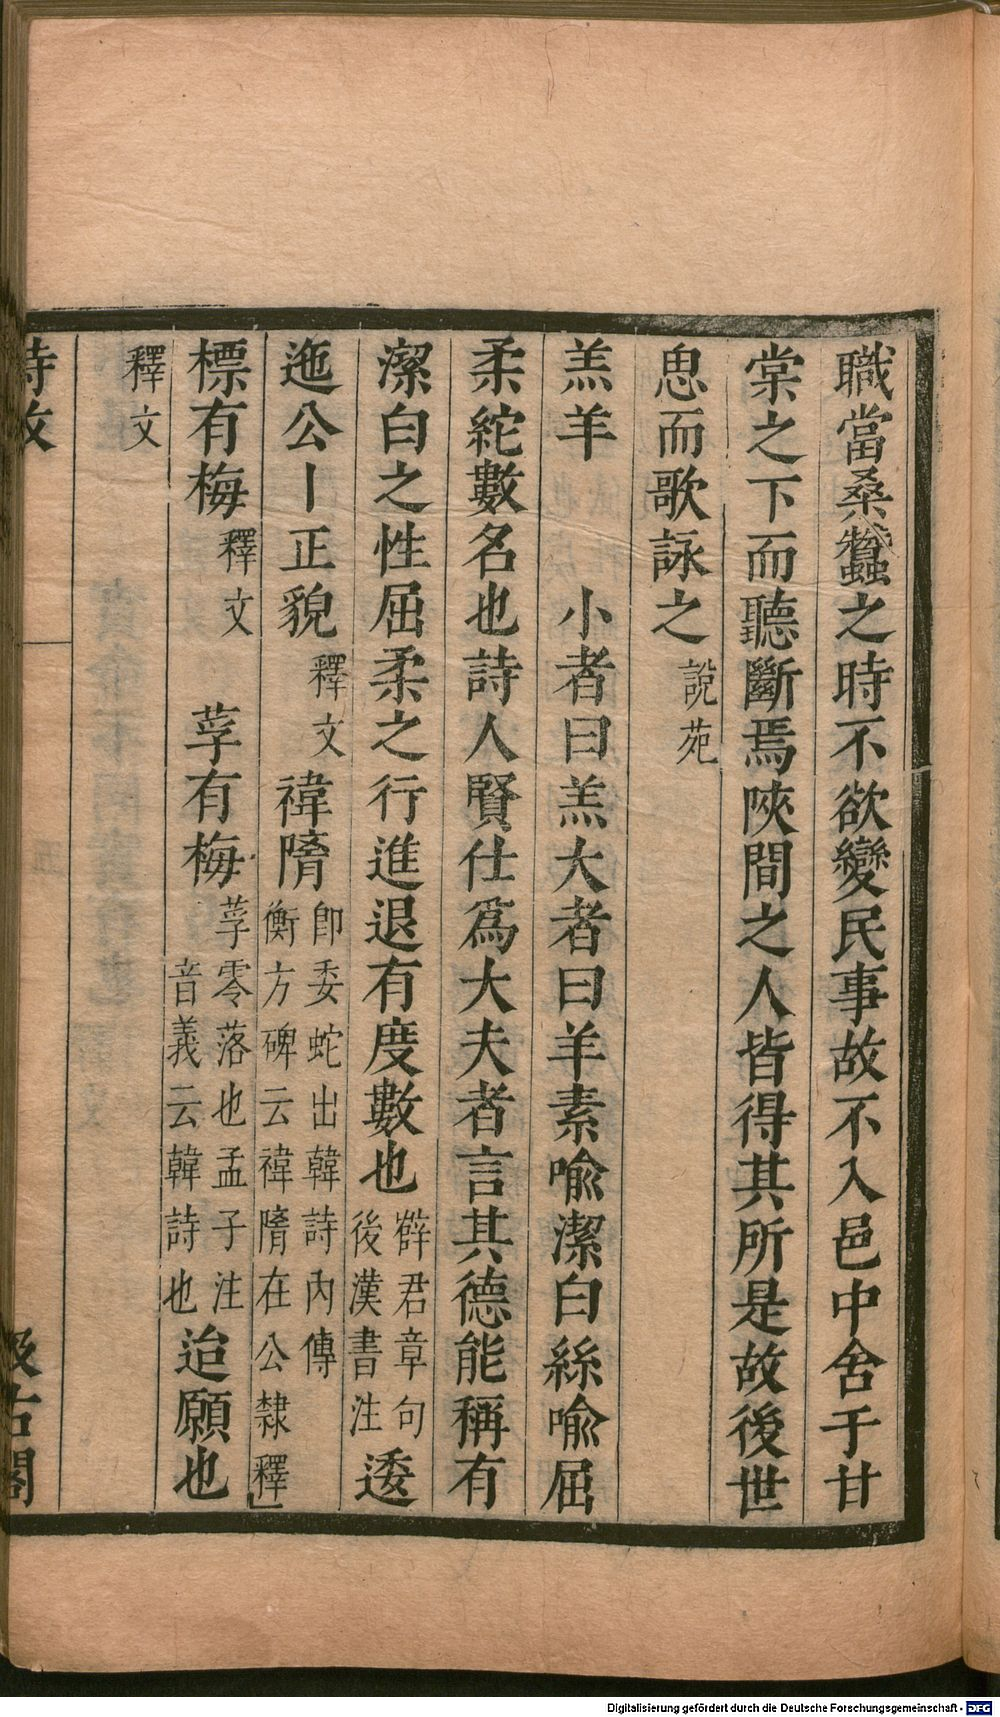 職當桑蠶之時不欲變民事故不入邑中舍于甘
棠之下而聽斷焉陜間之人皆得其所是故後世
思而歌詠之說苑
羔羊　小者曰羔大者曰羊素喻潔白絲喻屈
柔紽數名也詩人賢仕爲大夫者言其德能稱有
潔白之性屈柔之行進退有度數也薛君章句後漢書注逶
迤公丨正貌釋文禕隋卽委蛇出韓詩內傳衡方碑云禕隋在公隸釋
標有梅釋文　莩有梅莩零落也孟子注音義云韓詩也迨願也
釋文
詩攷
汲古閣
Digitalisierung gefördert durch die Deutsche Forschungsgemeinschaft - DFG